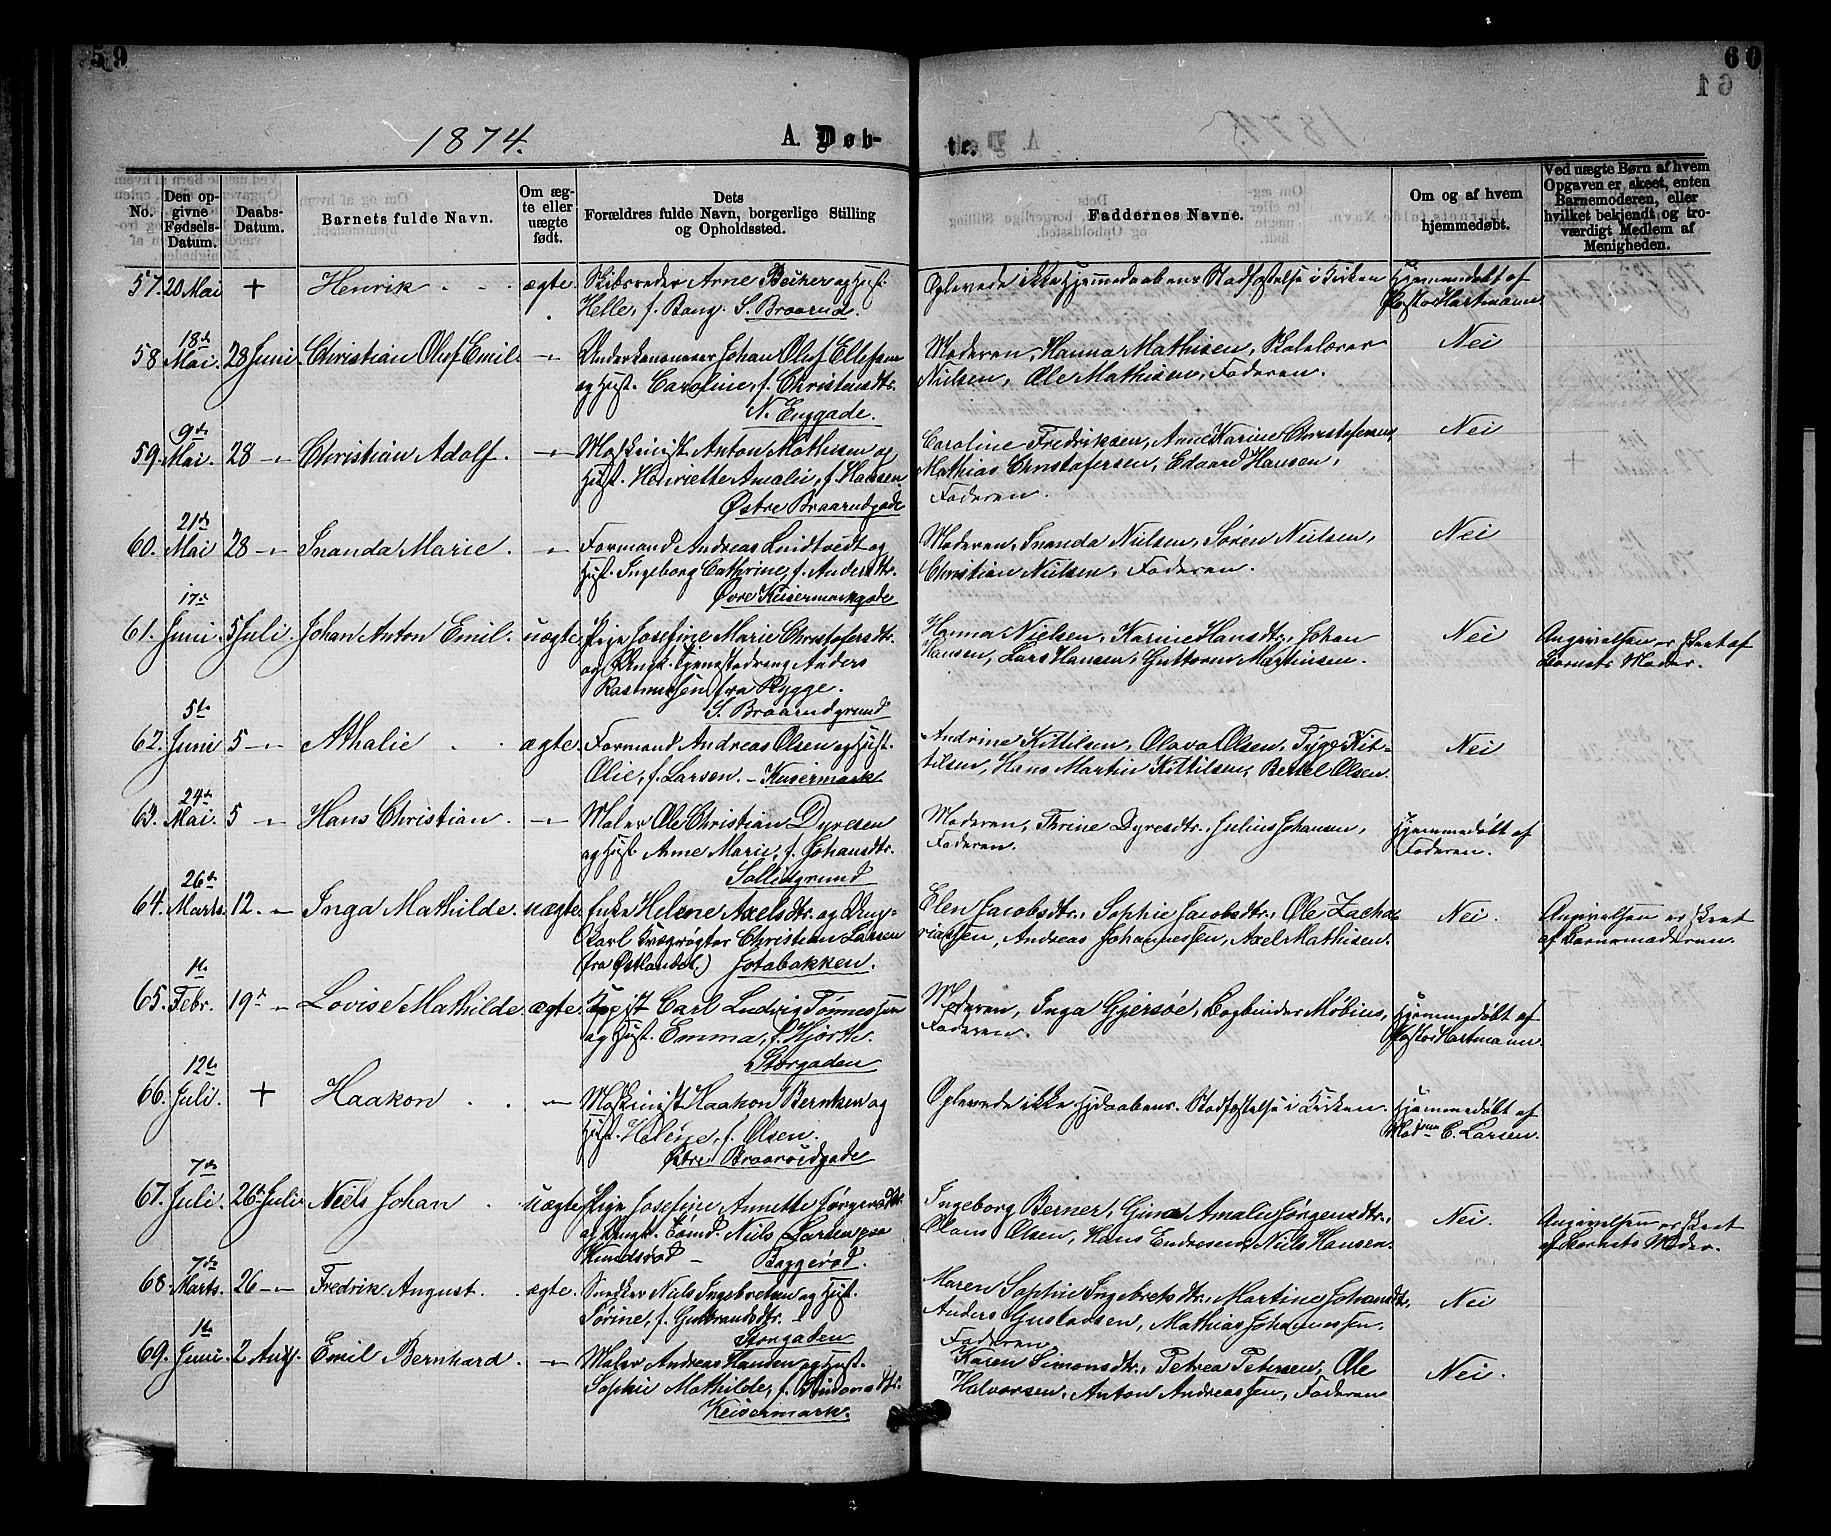 59
60
61
1874.
A. Døb-
te.
No.
Den op-
givne
Fødsels-
Datum.
Daabs-
Datum.
Barnets fulde Navn.
Om æg-
te eller
uægte
født.
Dets
Forældres fulde Navn, borgerlige Stilling
og Opholdssted.
Faddernes Navne.
Om og af hvem
hjemmedøbt.
Ved uægte Børn af hvem
Opgaven er skeet, enten
Barnemoderen, eller
hvilket bekjendt og tro-
værdigt Medlem af
Menigheden.
57. 20 Mai + Henrik ægte. Skibsreder Arne Becker og Hust.
Helle, f. Bang. S. Braarud.
Oplevede ikke Hjemmedaabens Stadfæstelse i Kirken
Hjemmedøbt af
Pastor Hartmann
58. 18de Mai. 28 Juni Christian Oluf Emil -"- Underkanoneer Johan Oluf Ellefsen
og Hust. Caroline, f. Christensdtr.
N. Enggade.
Moderen, Hanna Mathisen, Skolelærer
Nielsen, Ole Mathisen, Faderen.
Nei
59. 9de Mai. 28 -"- Christian Adolf. -"- Maskinist Anton Mathisen og
Hust. Henriette Amalie, f. Hansen.
Østre Braarudgade
Caroline Fredriksen, Anne Karine Christofersen,
Mathias Christofersen, Edvard Hansen,
Faderen.
Nei
60. 21de Mai 28 -"- Inanda Marie. -"- Formand Andreas Lindtvedt og
Hust. Ingeborg Cathrine, f. Andersdtr.
Øvre Keisermarkgade
Moderen, Inanda Nielsen, Søren Nielsen,
Christian Nielsen, Faderen.
Nei
61. 17de Juni 5 Juli. Johan Anton Emil. uægte. Pige Josefine Marie Christofersdtr.
og Ungk. Tjenestedreng Anders
Rasmussen fra Rygge.
S. Braarudgrund
Hanna Nielsen, Karine Hansdtr., Johan
Hansen, Lars Hansen, Guttorm Martinsen.
Nei
Angivelsen er skeet af
Barnets Moder.
62. 5te Juni 5 -"- Athalie ægte. Formand Andreas Olsen og Hust.
Olie, f. Larsen. - Keisermark
Andrine Kittilsen, Olava Olsen, Tygo Kit-
tilsen, Hans Martin Kittilsen, Bertel Olsen.
Nei
63. 24de Mai. 5 -"- Hans Christian. -"- Maler Ole Christian Dyresen
og Hust. Anne Marie, f. Johansdtr.
Sollidgrund
Moderen, Thrine Dyresdtr., Julius Johansen,
Faderen.
Hjemmedøbt af
Faderen.
64. 26de Marts. 12. -"- Inga Mathilde. uægte. Enke Helene Axelsdtr. og Ung-
karl Christian Larsen
(fra Østlandet.) Jotabakken.
Elen Jacobsdtr., Sophie Jacobsdtr., Ole Zacha-
riassen, Andreas Johannessen, Axel Mathisen.
Nei.
Angivelsen er skeet
af Barnemoderen.
65. 1te Febr. 19de -"- Lovise Mathilde. ægte. Kopist Carl Ludvig Tønnessen
og Hust. Emma, f. Hjorth.
Storgaden
Moderen, Inga Gjersøe, Bogbinder Möbius,
Faderen.
Hjemmedøbt af
Pastor Hartmann.
66. 12te Juli. + Haakon -"- Maskinist Haakon Berntsen og
Hust. Helene, f. Olsen.
Østre Braarudgade
Oplevede ikke Hjdaabens Stadfæstelse i Kirken.
Hjemmedøbt af
Madame C. Larsen.
67. 7de Juli. 26de Juli. Niels Johan uægte Pige Josefine Annette Jørgensdtr.
og Ungk. Tømd. Niels Larsen paa
Knudsrød - Baggerød.
Ingeborg Berner, Gina Amalie Jørgensdtr.,
Olaus Olsen, Hans Endresen, Niels Hansen.
Nei.
Angivelsen er skeet
af Barnets Moder.
68. 7de Marts. 26 -"- Fredrik August. ægte. Snedker Niels Ingebretsen og Hust.
Sørine, f. Gulbrandsdtr. -
Storgaden
Maren Sophie Ingebretsdtr., Martine Johansdtr.,
Anders Gustavsen, Mathias Johannessen,
Faderen.
Nei
69. 1te Juni. 2 Aug. Emil Bernhard. -"- Maler Andreas Hansen og Hust.
Sophie Mathilde, f. Simonsdtr.
Keisermark.
Karen Simonsdtr., Petrea Petersen, Ole
Halvorsen, Anton Andreassen, Faderen
Nei.